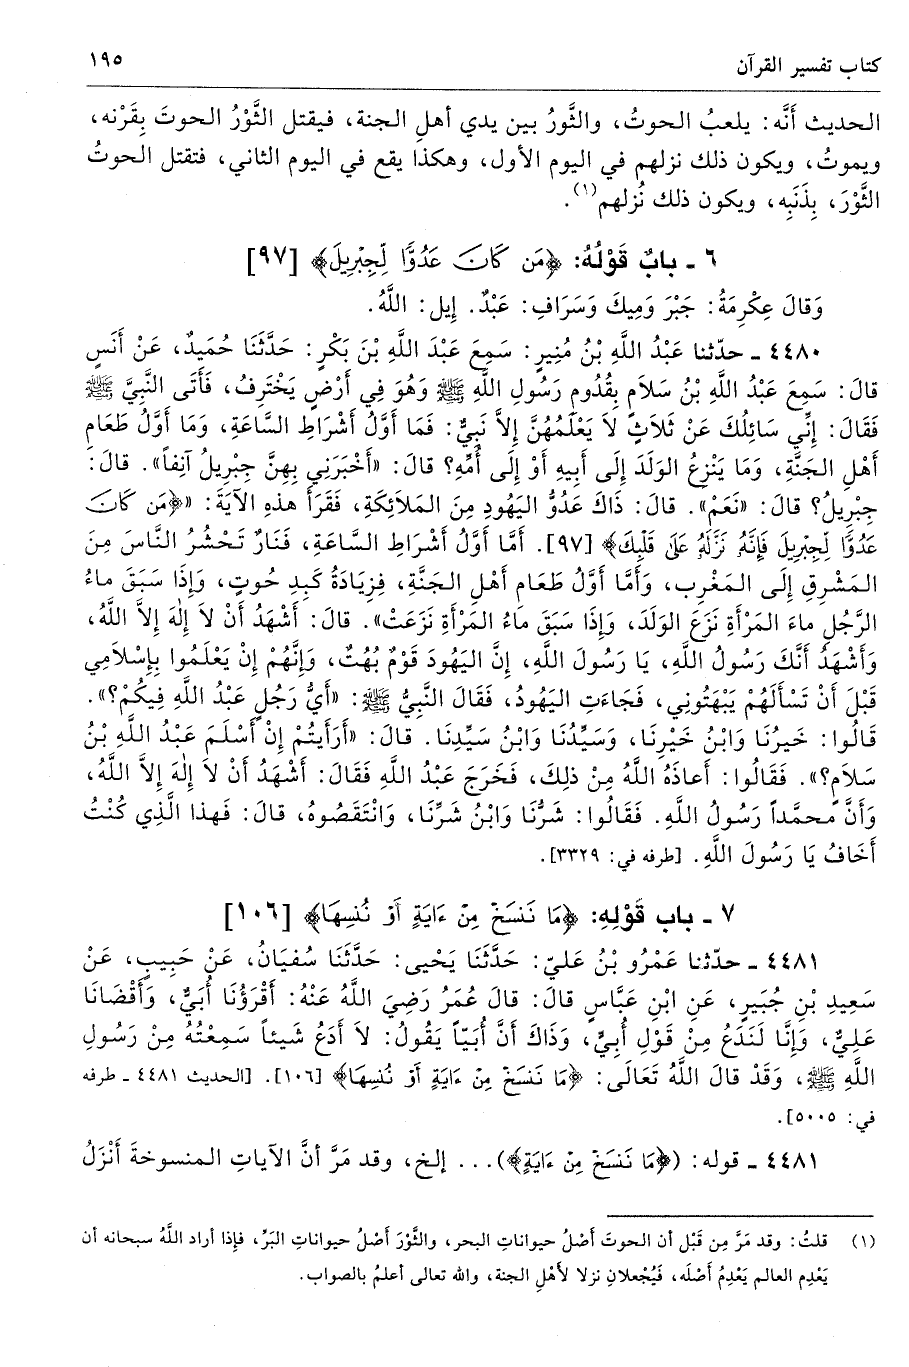 كتاب تفسير القرآن ١٩٥
الحديث أَنَّه: يلعبُ الحوتُ، والثَّورُ بين يدي أهلِ الجنة، فيقتل الثَّوْرُ الحوتَ بِقَرْنه،
ويموتُ، ويكون ذلك نزلهم في اليوم الأول، وهكذا يقع في اليوم الثاني، فتقتل الحوتُ
الثَّوْرَ، بِذَنَبِه، ويكون ذلك نُزلهم(١).
٦ ـ بابٌ قَوْلُهُ: ﴿مَن كَانَ عَدُوًّا لِّجِبْرِيلَ﴾ [٩٧]
وَقالَ عِكْرِمَةُ: جَبْرَ وَمِيكَ وَسَرَافِ: عَبْدٌ. إيل: اللَّهُ.
٤٤٨٠ ـ حدّثنا عَبْدُ اللَّهِ بْنُ مُنِيرٍ: سَمِعَ عَبْدَ اللَّهِ بْنَ بَكْرٍ: حَدَّثَنَا حُمَيدٌ، عَنْ أَنَسٍ
قالَ: سَمِعَ عَبْدُ اللَّهِ بْنُ سَلَامٍ بِقُدُومِ رَسُولِ اللَّهِ ﷺ وَهُوَ فِي أَرْضٍ يَخْتَرِفُ، فَأَتَى النَّبِيَّ ﷺ
فَقَالَ: إِنِّي سَائِلُكَ عَنْ ثَلاَثٍ لاَ يَعْلَمُهُنَّ إِلاَّ نَبِيٌّ: فَمَا أَوَّلُ أَشْرَاطِ السَّاعَةِ، وَمَا أَوَّلُ طَعَامِ
أَهْلِ الجَنَّةِ، وَمَا يَنْزِعُ الوَلَدَ إِلَى أَبِيهِ أَوْ إِلَى أُمِّهِ؟ قالَ: «أَخْبَرَنِي بِهِنَّ جِبْرِيلُ آنِفاً». قالَ:
جِبْرِيلُ؟ قالَ: «نَعَمْ». قالَ: ذَاكَ عَدُوُّ اليَهُودِ مِنَ المَلاَئِكَةِ، فَقَرَأَ هذهِ الآيَةَ: «﴿مَن كَانَ
عَدُوًّا لِّجِبْرِيلَ فَإِنَّهُ نَزَّلَهُ عَلَىٰ قَلْبِكَ﴾ [٩٧]. أَمَّا أَوَّلُ أَشْرَاطِ السَّاعَةِ، فَنَارٌ تَحْشُرُ النَّاسَ مِنَ
المَشْرِقِ إِلَى المَغْرِبِ، وَأَمَّا أَوَّلُ طَعَامِ أَهْلِ الجَنَّةِ، فَزِيَادَةُ كَبِدِ حُوتٍ، وَإِذَا سَبَقَ ماءُ
الرَّجُلِ ماءَ المَرْأَةِ نَزَعَ الوَلَدَ، وَإِذَا سَبَقَ ماءُ المَرْأَةِ نَزَعَتْ». قالَ: أَشْهَدُ أَنْ لاَ إِلٰهَ إِلاَّ اللَّهُ،
وَأَشْهَدُ أَنَّكَ رَسُولُ اللَّهِ، يَا رَسُولَ اللَّهِ، إِنَّ اليَهُودَ قَوْمٌ بُهُتٌ، وَإِنَّهُمْ إِنْ يَعْلَمُوا بِإِسْلاَمِي
قَبْلَ أَنْ تَسْأَلَهُمْ يَبْهَتُونِي، فَجَاءَتِ اليَهُودُ، فَقَالَ النَّبِيُّ ﷺ: «أَيُّ رَجُلٍ عَبْدُ اللَّهِ فِيكُمْ؟».
قَالُوا: خَيرُنَا وَابْنُ خَيْرِنَا، وَسَيِّدُنَا وَابْنُ سَيِّدِنَا. قالَ: «أَرَأَيتُمْ إِنْ أَسْلَمَ عَبْدُ اللَّهِ بْنُ
سَلاَمٍ؟». فَقَالُوا: أَعاذَهُ اللَّهُ مِنْ ذلِكَ، فَخَرَجَ عَبْدُ اللَّهِ فَقَالَ: أَشْهَدُ أَنْ لاَ إِلٰهَ إِلاَّ اللَّهُ،
وَأَنَّ محمَّداً رَسُولُ اللَّهِ. فَقَالُوا: شَرُّنَا وَابْنُ شَرِّنَا، وَانْتَقَصُوهُ، قالَ: فَهذا الَّذِي كُنْتُ
أَخَافُ يَا رَسُولَ اللَّهِ. [طرفه في: ٣٣٢٩].
٧ ـ باب قَوْلِهِ: ﴿مَا نَنسَخْ مِنْ ءَايَةٍ أَوْ نُنسِهَا﴾ [١٠٦]
٤٤٨١ ـ حدّثنا عَمْرُو بْنُ عَلِيّ: حَدَّثَنَا يَحْيى: حَدَّثَنَا سُفيَانُ، عَنْ حَبِيبٍ، عَنْ
سَعِيدِ بْنِ جُبَيرٍ، عَنِ ابْنِ عَبَّاسٍ قالَ: قالَ عُمَرُ رَضِيَ اللَّهُ عَنْهُ: أَقْرَؤُنَا أُبَيٌّ، وَأَقْضَانَا
عَلِيٌّ، وَإِنَّا لَنَدَعُ مِنْ قَوْلِ أُبَيٍّ، وَذَاكَ أَنَّ أُبَيّاً يَقُولُ: لاَ أَدَعُ شَيئاً سَمِعْتُهُ مِنْ رَسُولِ
اللَّهِ ﷺ، وَقَدْ قالَ اللَّهُ تَعَالَى: ﴿مَا نَنسَخْ مِنْ ءَايَةٍ أَوْ نُنسِهَا﴾ [١٠٦]. [الحديث ٤٤٨١ ـ طرفه
في: ٥٠٠٥].
٤٤٨١ ـ قوله: (﴿مَا نَنسَخْ مِنْ ءَايَةٍ﴾)... إلخ، وقد مَرَّ أنَّ الآياتِ المنسوخةَ أَنْزَلُ
(١) قلتُ: وقد مَرَّ مِن قَبْل أن الحوتَ أَصْلُ حيواناتِ البحر، والثَّوْرَ أَصْلُ حيواناتِ البَرِّ، فإِذا أراد اللَّهُ سبحانه أن
يَعْدِم العالم يَعْدِمُ أَصْلَه، فَيُجْعلانِ نزلا لأَهْلِ الجنة، والله تعالى أعلمُ بالصواب.